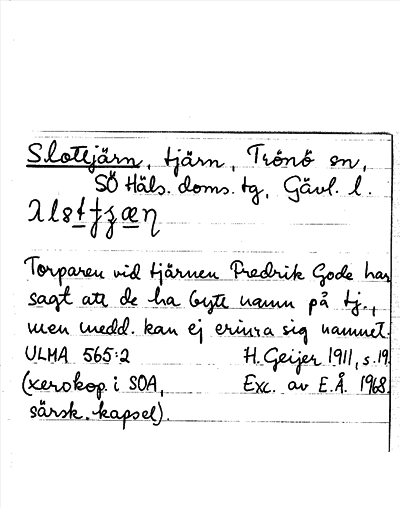 Slottjärn, tjärn, Trönö sn,
SÖ Häls. doms. tg, Gävl. l.
Torparen vid tjärnen Fredrik Gode har
sagt att de ha bytt namn på tj.,
men medd. kan ej erinra sig namnet.
ULMA 565:2 H. Geijer 1911, s. 19.
(xerokop. i SOA, Exc. av E.Å. 1968.
särsk. kapsel).